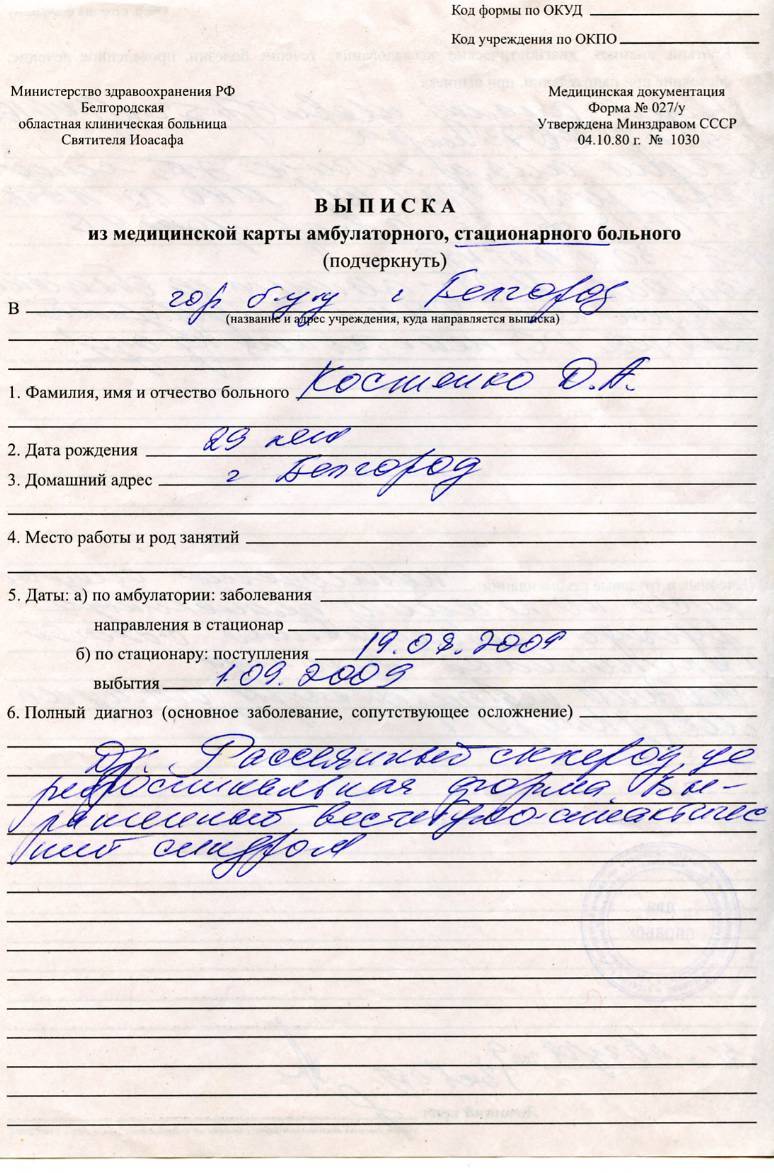 Код формы по ОКУД
Код учреждения по ОКПО
Министерство здравоохранения РФ
Белгородская
областная клиническая больница
Святителя Иоасафа
Медицинская документация
Форма № 027/у
Утверждена Минздравом СССР
04.10.80 г. № 1030
ВЫПИСКА
из медицинской карты амбулаторного, стационарного больного
(подчеркнуть)
В гор г Белгород
(название и адрес учреждения, куда направляется выписка)
1. Фамилия, имя и отчество больного Костенко Д.А.
2. Дата рождения 29 лет
3. Домашний адрес г Белгород
4. Место работы и род занятий
5. Даты: а) по амбулатории: заболевания
направления в стационар
б) по стационару: поступления 19.08.2009
выбытия 1.09.2009
6. Полный диагноз (основное заболевание, сопутствующее осложнение)
Дз. Рассеянный склероз, це
реброспинальная форма Вы-
раженный вестибуло-атактичес
кий синдром
для
справок